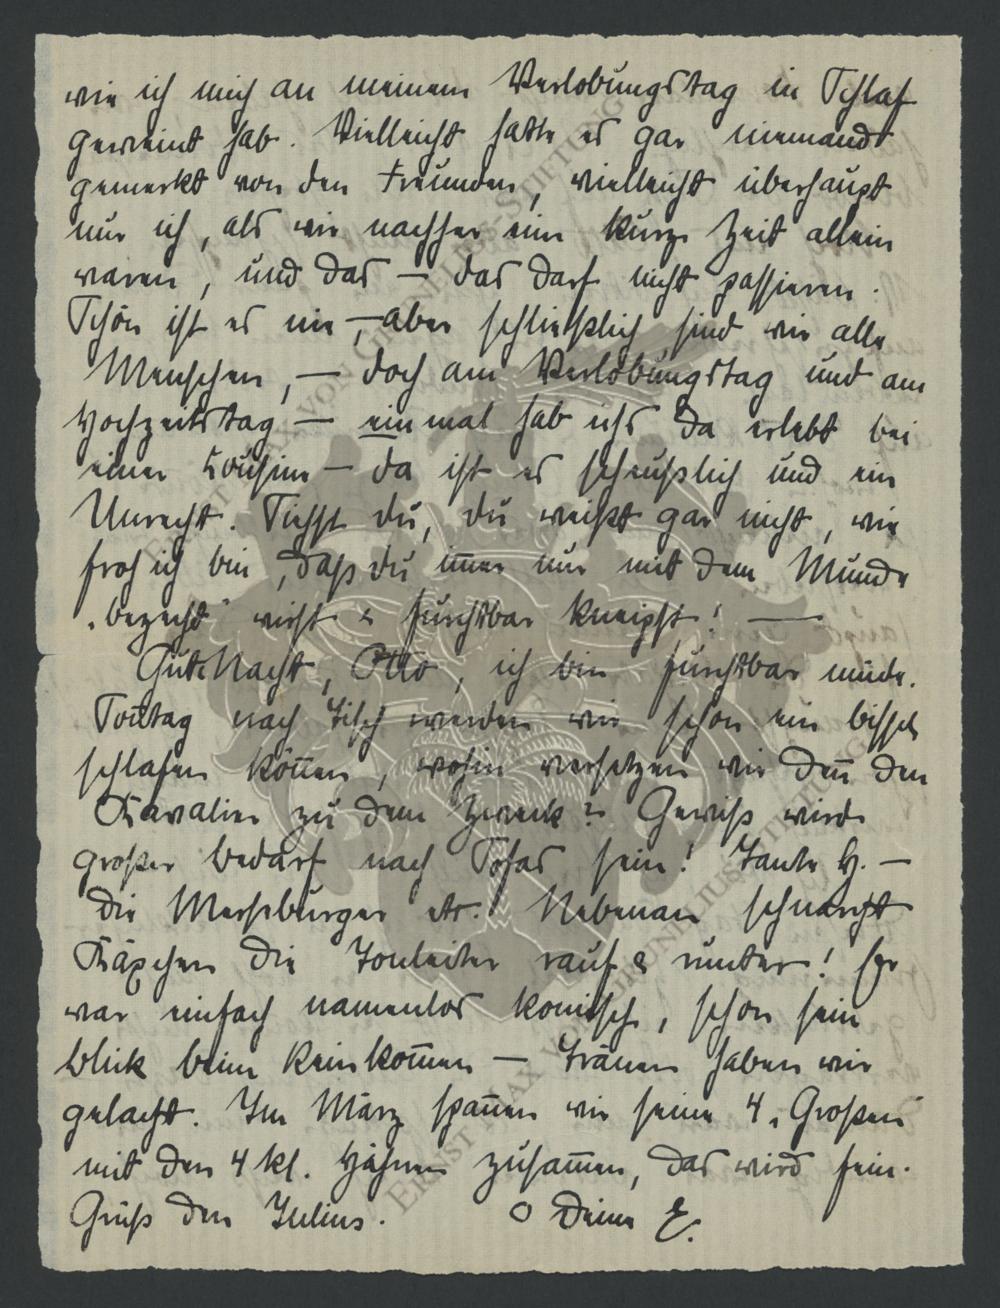 wie ich mich an meinem Verlobungstag in Schlaf
geweint hab. Vielleicht hatte es gar niemand
gemerkt von den Freunden, vielleicht überhaupt
nur ich, als wir nachher eine kurze Zeit allein
waren, und das — das darf nicht passieren.
Schön ist es nie —, aber schließlich sind wir alle
Menschen, — doch am Verlobungstag und am
Hochzeitstag — einmal hab ichs da erlebt bei
einer Cousine — da ist es scheußlich und ein
Unrecht. Siehst du, du weißt gar nicht, wie
froh ich bin, daß du im̄er nur mit dem Munde
„bezecht" wirst & furchtbar kneipst! —
Gute Nacht, Otto, ich bin furchtbar müde.
Son̄tag nach Tisch werden wir schon ein bissel
schlafen kön̄en, wohin versetzen wir den̄ den
Kavalier zu dem Zweck? Gewiß wird
großer Bedarf nach Sofas sein! Tante H. —
die Merseburger etc. Nebenan schnarcht
die Tonleiter rauf & runter! Er
war einfach namenlos komisch, schon sein
Blick beim Reinkom̄en — Tränen haben wir
gelacht. Im März span̄en wir seine 4 „Großen"
mit den 4 kl. Hähnen zusam̄en, das wird fein.
Grüß den Julius. O Deine E.
ERNST MAX VON GRUNELIUS-STIFTUNG
ERNST MAX VON GRUNELIUS-STIFTUNG